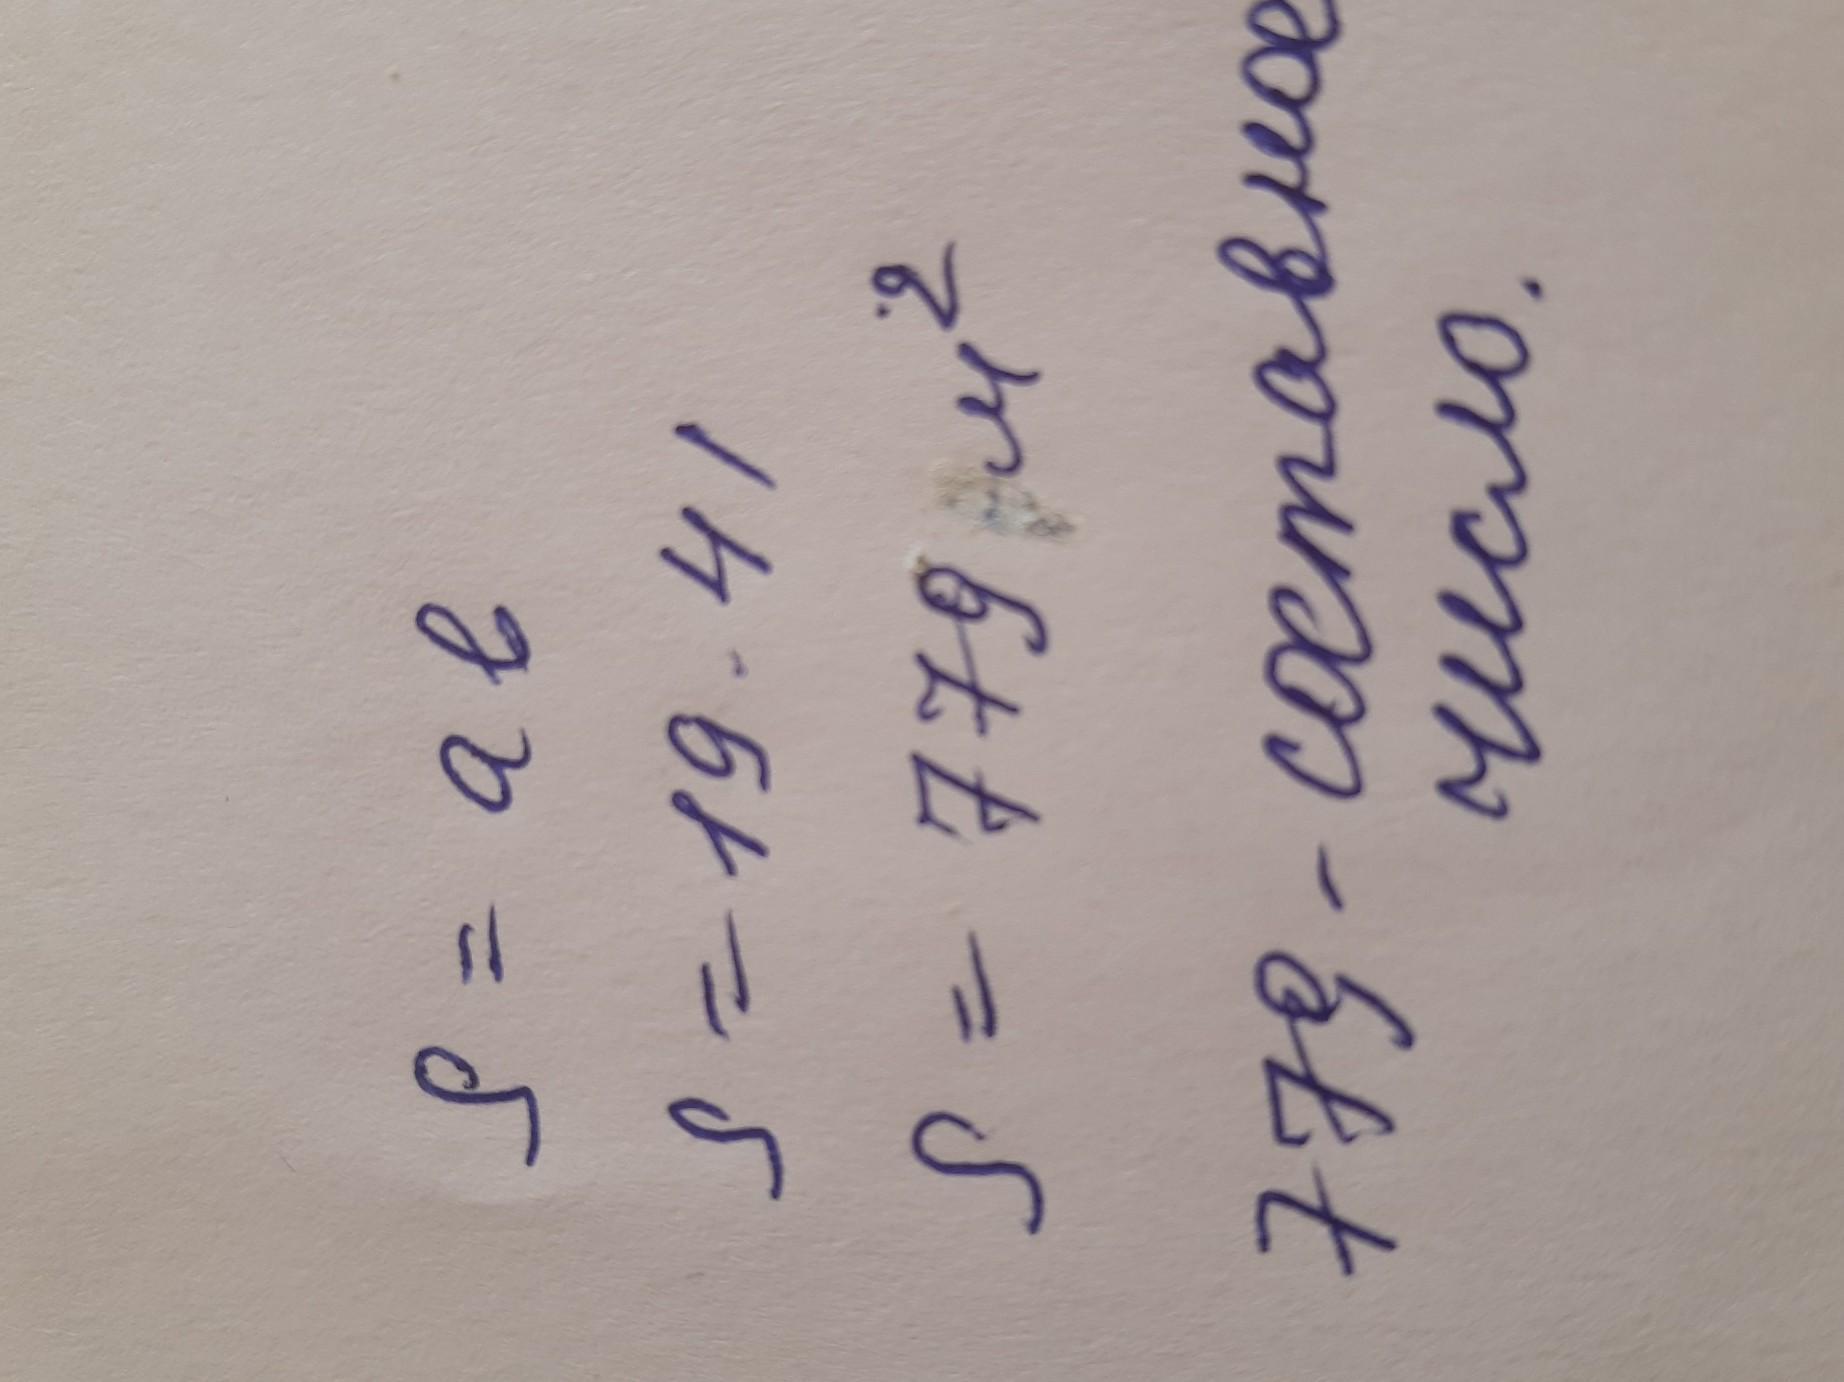 S = a b
S = 19 · 41
S = 779 м²
779 - составное
число.